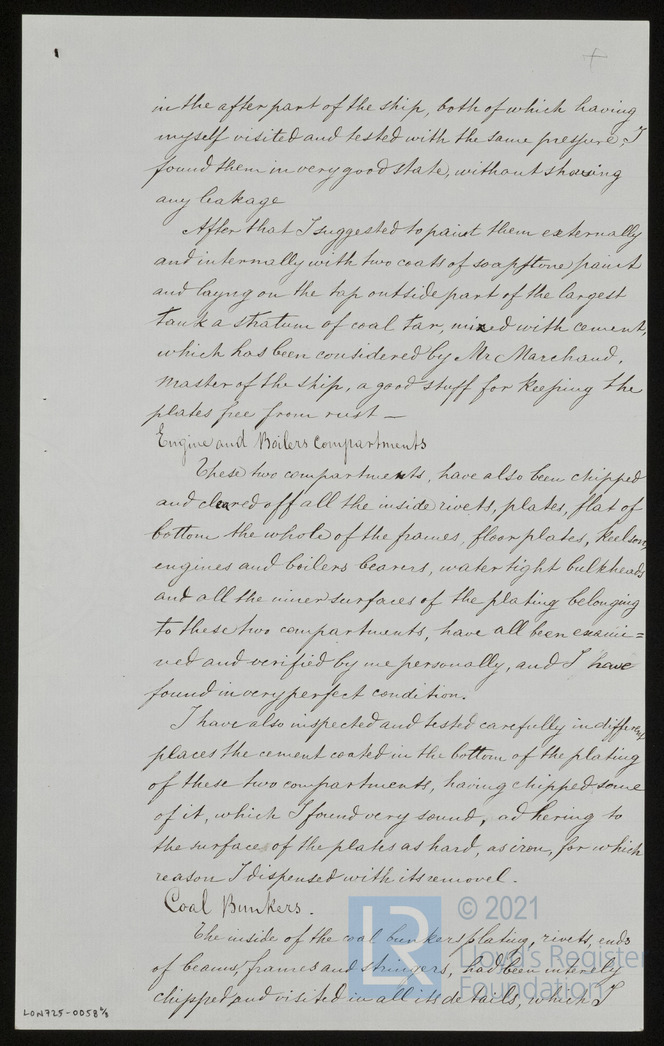 in the after part of the ship, both of which having
myself visited and tested with the same pressure, I
found them in very good state, without showing
any leakage
After that I suggested to paint them externally
and internally with two coats of soapstone paint
and layng on the top outside part of the largest
tank a stratum of coal tar, mixed with cement,
which has been considered by Mr Marchand,
master of the ship, a good stuff for keeping the
plates free from rust —
Engine and Boilers compartments
These two compartments, have also been chipped
and cleared off all the inside rivets, plates, flat of
bottom the whole of the frames, floor plates, keelson,
engines and boilers bearers, water tight bulkheads
and all the inner surfaces of the plating belonging
to these two compartments, have all been exami=
ned and verified by me personally, and I have
found in very perfect condition.
I have also inspected and tested carefully in different
places the cement coated in the bottom of the plating
of these two compartments, having chipped some
of it, which I found very sound, ad hering to
the surface of the plates as hard, as iron, for which
reason I dispensed with its removel.
Coal Bunkers.
The inside of the coal bunkers plating, rivets, ends
of beams, frames and stringers, had been intirely
chipped and visited in all its details, which I
© 2021
LR
Lloyd's Register
Foundation
LON725-0058 2/8